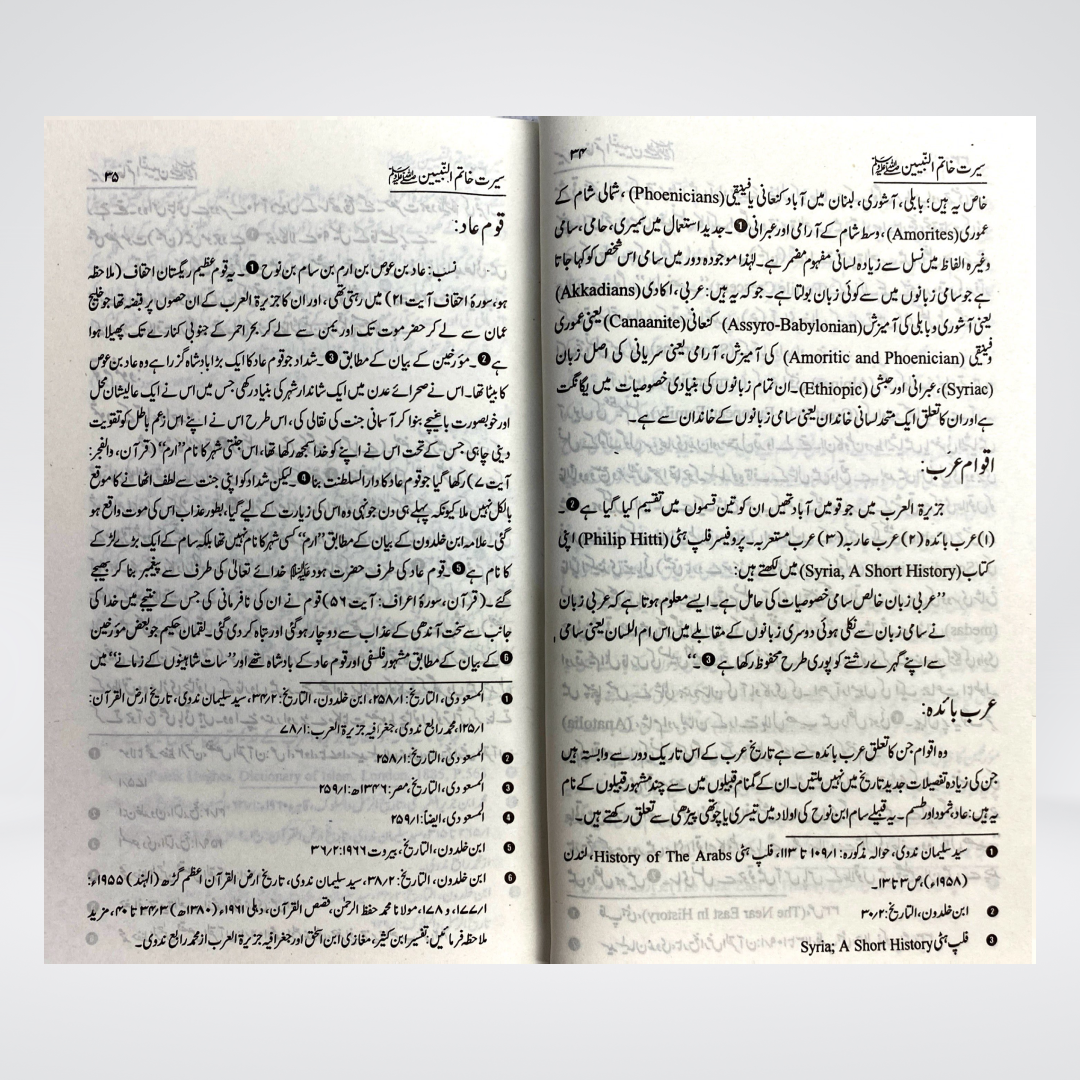 سیرت خاتم النّبیین ﷺ
۳۴
خاص یہ ہیں؛ بابلی، آشوری، لبنان میں آباد کنعانی یا فینیقی (Phoenicians)، شمالی شام کے
عموری (Amorites)، وسط شام کے آرامی اور عبرانی ❶۔ جدید استعمال میں سمیری، حامی، سامی
وغیرہ الفاظ میں نسل سے زیادہ لسانی مفہوم مضمر ہے۔ لہٰذا موجودہ دور میں سامی اس شخص کو کہا جاتا
ہے جو سامی زبانوں میں سے کوئی زبان بولتا ہے۔ جو کہ یہ ہیں: عربی، اکادی (Akkadians)
یعنی آشوری و بابلی کی آمیزش (Assyro-Babylonian) کنعانی (Canaanite) یعنی عموری
و فینیقی (Amoritic and Phoenician) کی آمیزش، آرامی یعنی سریانی کی اصل زبان
(Syriac)، عبرانی اور حبشی (Ethiopic)۔ ان تمام زبانوں کی بنیادی خصوصیات میں یگانگت
ہے اور ان کا تعلق ایک متحد لسانی خاندان یعنی سامی زبانوں کے خاندان سے ہے۔
اقوام عرب:
جزیرۃ العرب میں جو قومیں آباد تھیں ان کو تین قسموں میں تقسیم کیا گیا ہے ❷۔
(۱) عرب بائدہ (۲) عرب عاربہ (۳) عرب مستعربہ۔ پروفیسر فلپ ہٹی (Philip Hitti) اپنی
کتاب (Syria, A Short History) میں لکھتے ہیں:
”عربی زبان خالص سامی خصوصیات کی حامل ہے۔ ایسے معلوم ہوتا ہے کہ عربی زبان
نے سامی زبان سے نکلی ہوئی دوسری زبانوں کے مقابلے میں اس ام اللسان یعنی سامی
سے اپنے گہرے رشتے کو پوری طرح محفوظ رکھا ہے ❸۔“
عرب بائدہ:
وہ اقوام جن کا تعلق عرب بائدہ سے ہے تاریخ عرب کے اس تاریک دور سے وابستہ ہیں
جن کی زیادہ تفصیلات جدید تاریخ میں نہیں ملتیں۔ ان کے گمنام قبیلوں میں سے چند مشہور قبیلوں کے نام
یہ ہیں: عاد، ثمود اور طسم۔ یہ قبیلے سام ابن نوح کی اولاد میں تیسری یا چوتھی پیڑھی سے تعلق رکھتے ہیں۔
❶ سید سلیمان ندوی، حوالہ مذکورہ: ۱/۱۰۹ تا ۱۱۳، فلپ ہٹی History of The Arabs، لندن
(۱۹۵۸ء)، ص ۳ تا ۱۳۔
❷ ابن خلدون، التاریخ: ۲/۳۰
❸ فلپ ہٹی Syria; A Short History
سیرت خاتم النّبیین ﷺ
۳۵
قوم عاد:
نسب: عاد بن عوص بن ارم بن سام بن نوح ❶۔ یہ قوم عظیم ریگستان احقاف (ملاحظہ
ہو، سورۂ احقاف آیت ۲۱) میں رہتی تھی، اور ان کا جزیرۃ العرب کے ان حصوں پر قبضہ تھا جو خلیج
عمان سے لے کر حضر موت تک اور یمن سے لے کر بحر احمر کے جنوبی کنارے تک پھیلا ہوا
ہے ❷۔ مؤرخین کے بیان کے مطابق ❸۔ شداد جو قوم عاد کا ایک بڑا بادشاہ گزرا ہے وہ عاد بن عوص
کا بیٹا تھا۔ اس نے صحرائے عدن میں ایک شاندار شہر کی بنیاد رکھی جس میں اس نے ایک عالیشان محل
اور خوبصورت باغیچے بنوا کر آسمانی جنت کی نقالی کی، اس طرح اس نے اپنے اس زعم باطل کو تقویت
دینی چاہی جس کے تحت اس نے اپنے کو خدا سمجھ رکھا تھا، اس جنتی شہر کا نام ”ارم“ (قرآن، والفجر:
آیت ۷) رکھا گیا جو قوم عاد کا دار السلطنت بنا ❹۔ لیکن شداد کو اپنی جنت سے لطف اٹھانے کا موقع
بالکل نہیں ملا کیونکہ پہلے ہی دن جونہی وہ اس کی زیارت کے لیے گیا، بطور عذاب اس کی موت واقع ہو
گئی۔ علامہ ابن خلدون کے بیان کے مطابق ”ارم“ کسی شہر کا نام نہیں تھا بلکہ سام کے ایک بڑے لڑکے
کا نام ہے ❺۔ قوم عاد کی طرف حضرت ہود علیہ السلام خدائے تعالیٰ کی طرف سے پیغمبر بنا کر بھیجے
گئے۔ (قرآن، سورۂ اعراف: آیت ۵۶) قوم نے ان کی نافرمانی کی جس کے نتیجے میں خدا کی
جانب سے سخت آندھی کے عذاب سے دوچار ہوگئی اور تباہ کر دی گئی۔ لقمان حکیم جو بعض مؤرخین
❻ کے بیان کے مطابق مشہور فلسفی اور قوم عاد کے بادشاہ تھے اور ”سات شاہینوں کے زمانے“ میں
❶ المسعودی، التاریخ: ۱/۲۵۸، ابن خلدون، التاریخ: ۲/۳۴، سید سلیمان ندوی، تاریخ ارض القرآن:
۱/۱۲۵، محمد رابع ندوی، جغرافیہ جزیرۃ العرب: ۱/۷۸
❷ المسعودی، التاریخ: ۱/۲۵۸
❸ المسعودی، التاریخ، مصر: ۱۳۴۶ھ: ۱/۲۵۹
❹ المسعودی، ایضاً: ۱/۲۵۹
❺ ابن خلدون، التاریخ، بیروت ۱۹۶۶: ۲/۳۶
❻ ابن خلدون، التاریخ: ۲/۳۸، سید سلیمان ندوی، تاریخ ارض القرآن اعظم گڑھ (الہند) ۱۹۵۵ء:
۱/۱۷۷ و ۱۷۸، مولانا محمد حفظ الرحمٰن، قصص القرآن، دہلی ۱۹۶۱ء (۱۳۸۰ھ) ۳/۳۴ تا ۴۰، مزید
ملاحظہ فرمائیں: تفسیر ابن کثیر، مغازی ابن اسحٰق اور جغرافیہ جزیرۃ العرب از محمد رابع ندوی۔